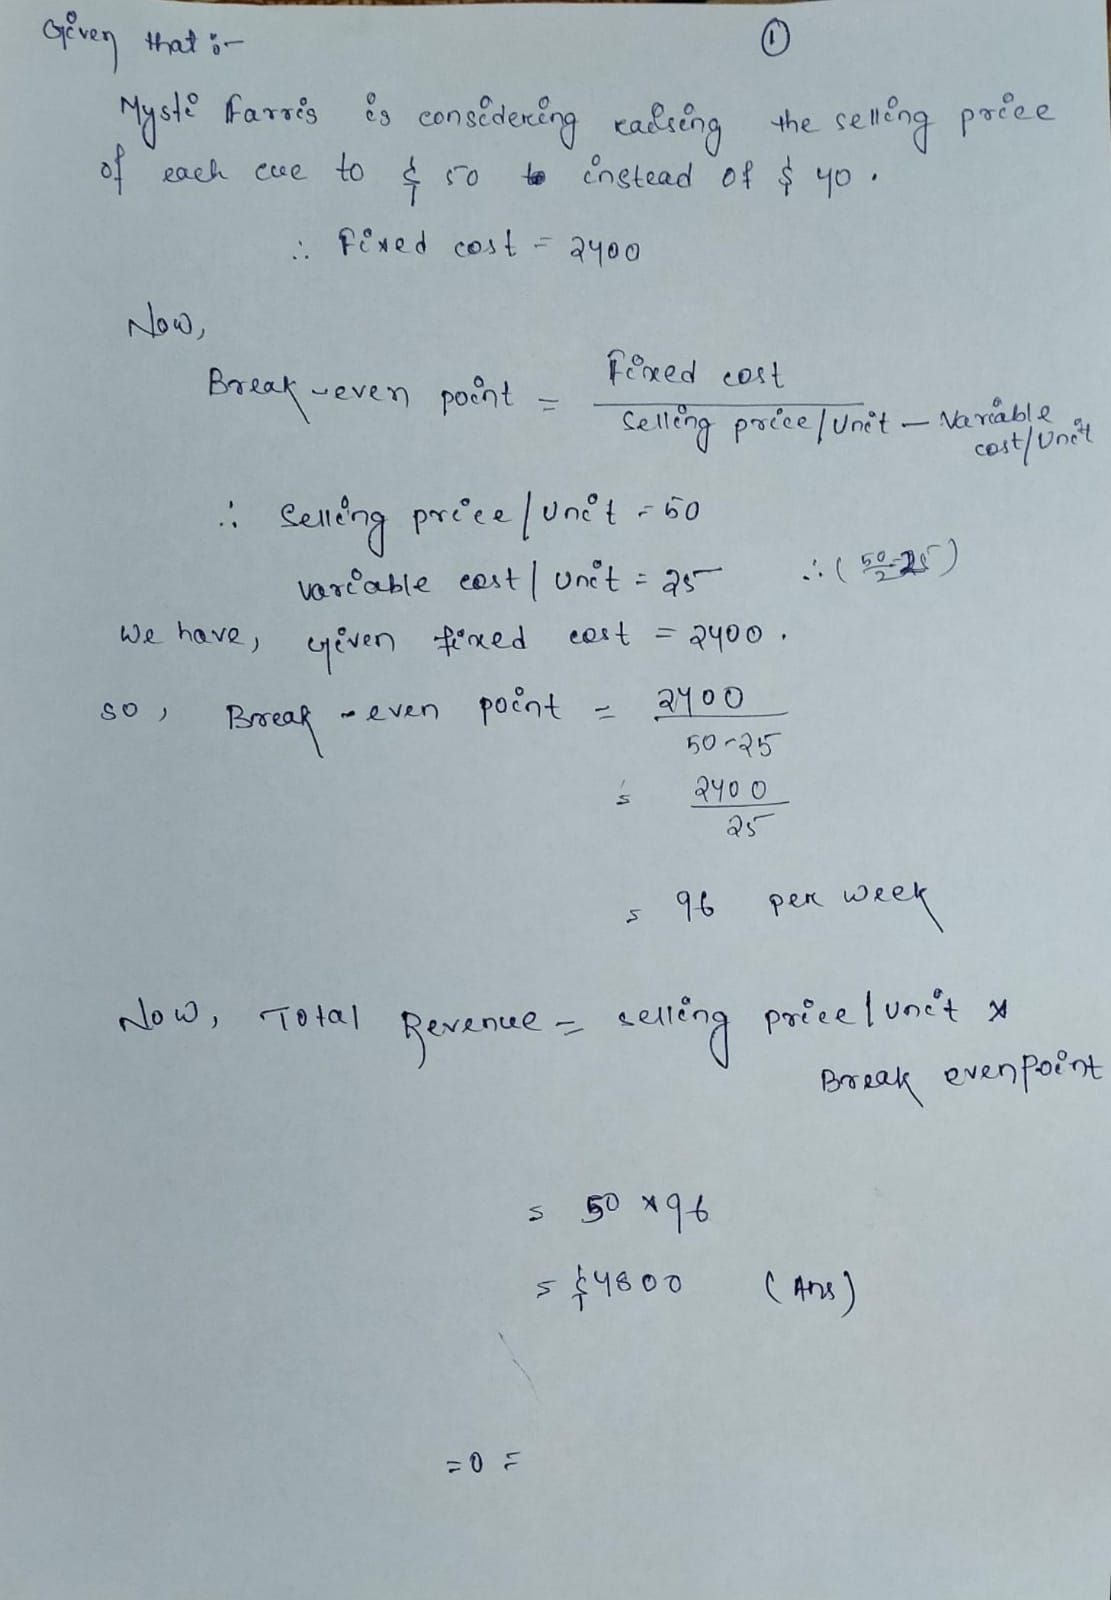 Given that :-
①
Mysti Farris is considering raising the selling price
of each cue to $ 50 to instead of $ 40.
∴ Fixed cost = 2400
Now,
Break-even point = Fixed cost / Selling price/Unit - Variable cost/Unit
∴ Selling price/Unit = 50
variable cost/Unit = 25 ∴ (50/2=25)
We have, given fixed cost = 2400.
so, Break-even point = 2400 / 50-25
= 2400 / 25
= 96 per week
Now, Total Revenue = selling price/unit ×
Break even Point
= 50 × 96
= $4800 (Ans)
=0=